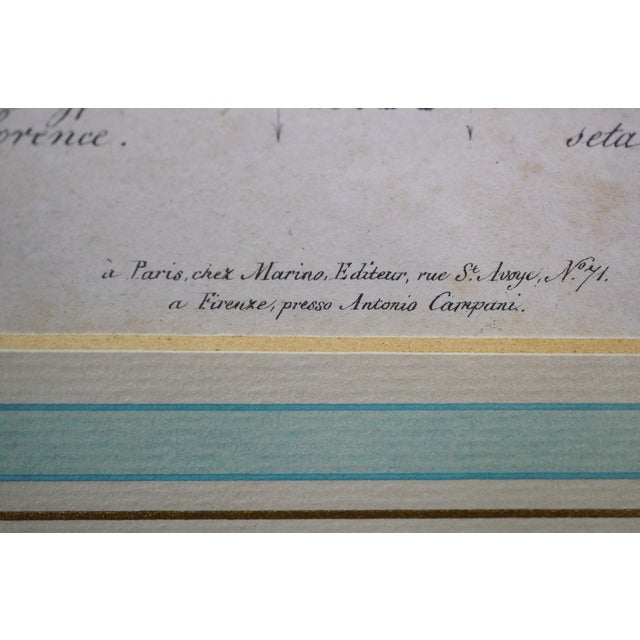 seta
à Paris, chez Marino, Editeur, rue St. Avoye, No. 71.
a Firenze, presso Antonio Campani.